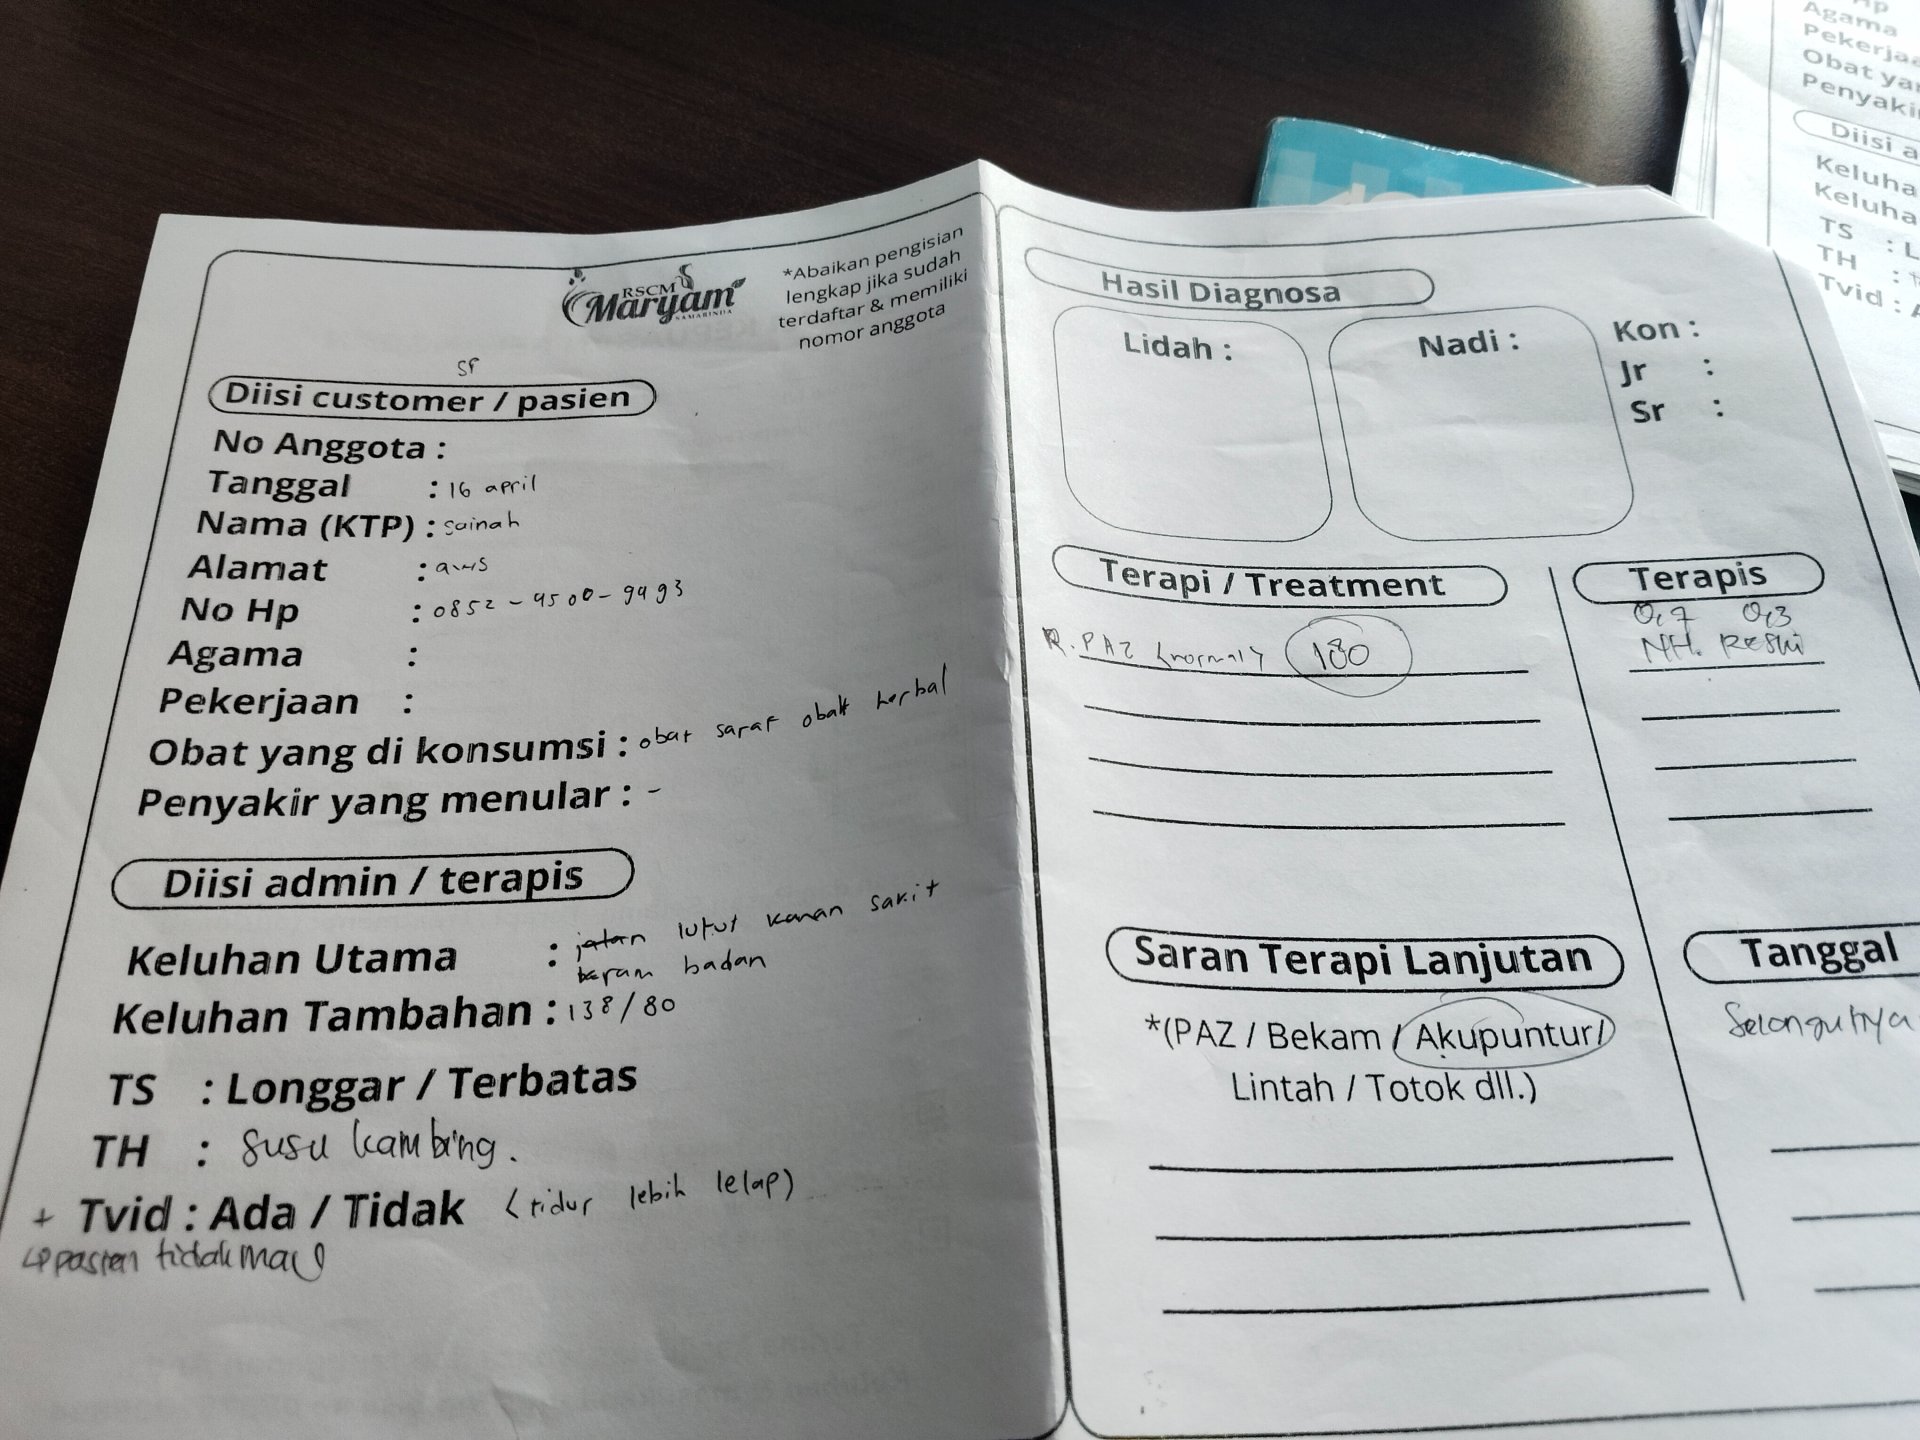 RSCM
Maryam
SAMARINDA
*Abaikan pengisian
lengkap jika sudah
terdaftar & memiliki
nomor anggota
Diisi customer / pasien
No Anggota :
Tanggal : 16 april
Nama (KTP) : sainah
Alamat : aws
No Hp : 0852-4500-9493
Agama :
Pekerjaan :
Obat yang di konsumsi : obat saraf obat herbal
Penyakir yang menular : -
Diisi admin / terapis
Keluhan Utama : jatan lutut kanan sakit
keram badan
Keluhan Tambahan : 138/80
TS : Longgar / Terbatas
TH : susu kambing.
+ Tvid : Ada / Tidak (tidur lebih lelap)
pasien tidak mau
Hasil Diagnosa
Lidah :
Nadi :
Kon :
Jr :
Sr :
Terapi / Treatment
R. PAZ (normal) 180
Terapis
0,7 0,3
NH. Reski
Saran Terapi Lanjutan
*(PAZ / Bekam / Akupuntur/
Lintah / Totok dll.)
Tanggal
Selanjutnya
Agama
Pekerjaa
Obat ya
Penyaki
Diisi a
Keluha
Keluha
TS : L
TH :
Tvid : A